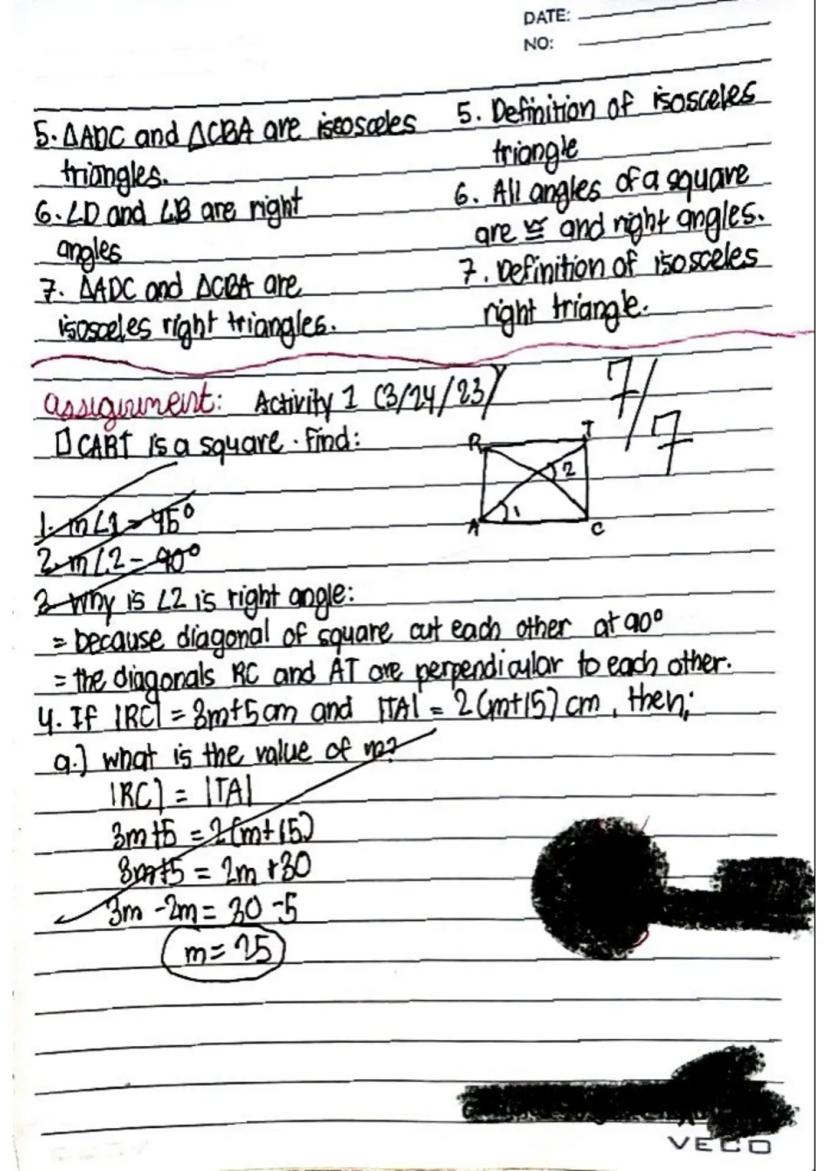 DATE:
NO:
5. ΔADC and ΔCBA are isosceles
triangles.
6. ∠D and ∠B are right
angles
7. ΔADC and ΔCBA are
isosceles right triangles.
5. Definition of isosceles
triangle
6. All angles of a square
are ≅ and right angles.
7. Definition of isosceles
right triangle.
assignment: Activity 1 (3/24/23)
7/7
□CART is a square. Find:
R T
2
1
A C
1. m∠1 = 45°
2. m∠2 = 90°
3. Why is ∠2 is right angle:
= because diagonal of square cut each other at 90°
= the diagonals RC and AT are perpendicular to each other.
4. If |RC| = 3m+5cm and |TA| = 2(m+15) cm, then;
a.) what is the value of m?
|RC| = |TA|
3m+5 = 2(m+15)
3m+5 = 2m +30
3m -2m = 30 -5
m= 25
VECO